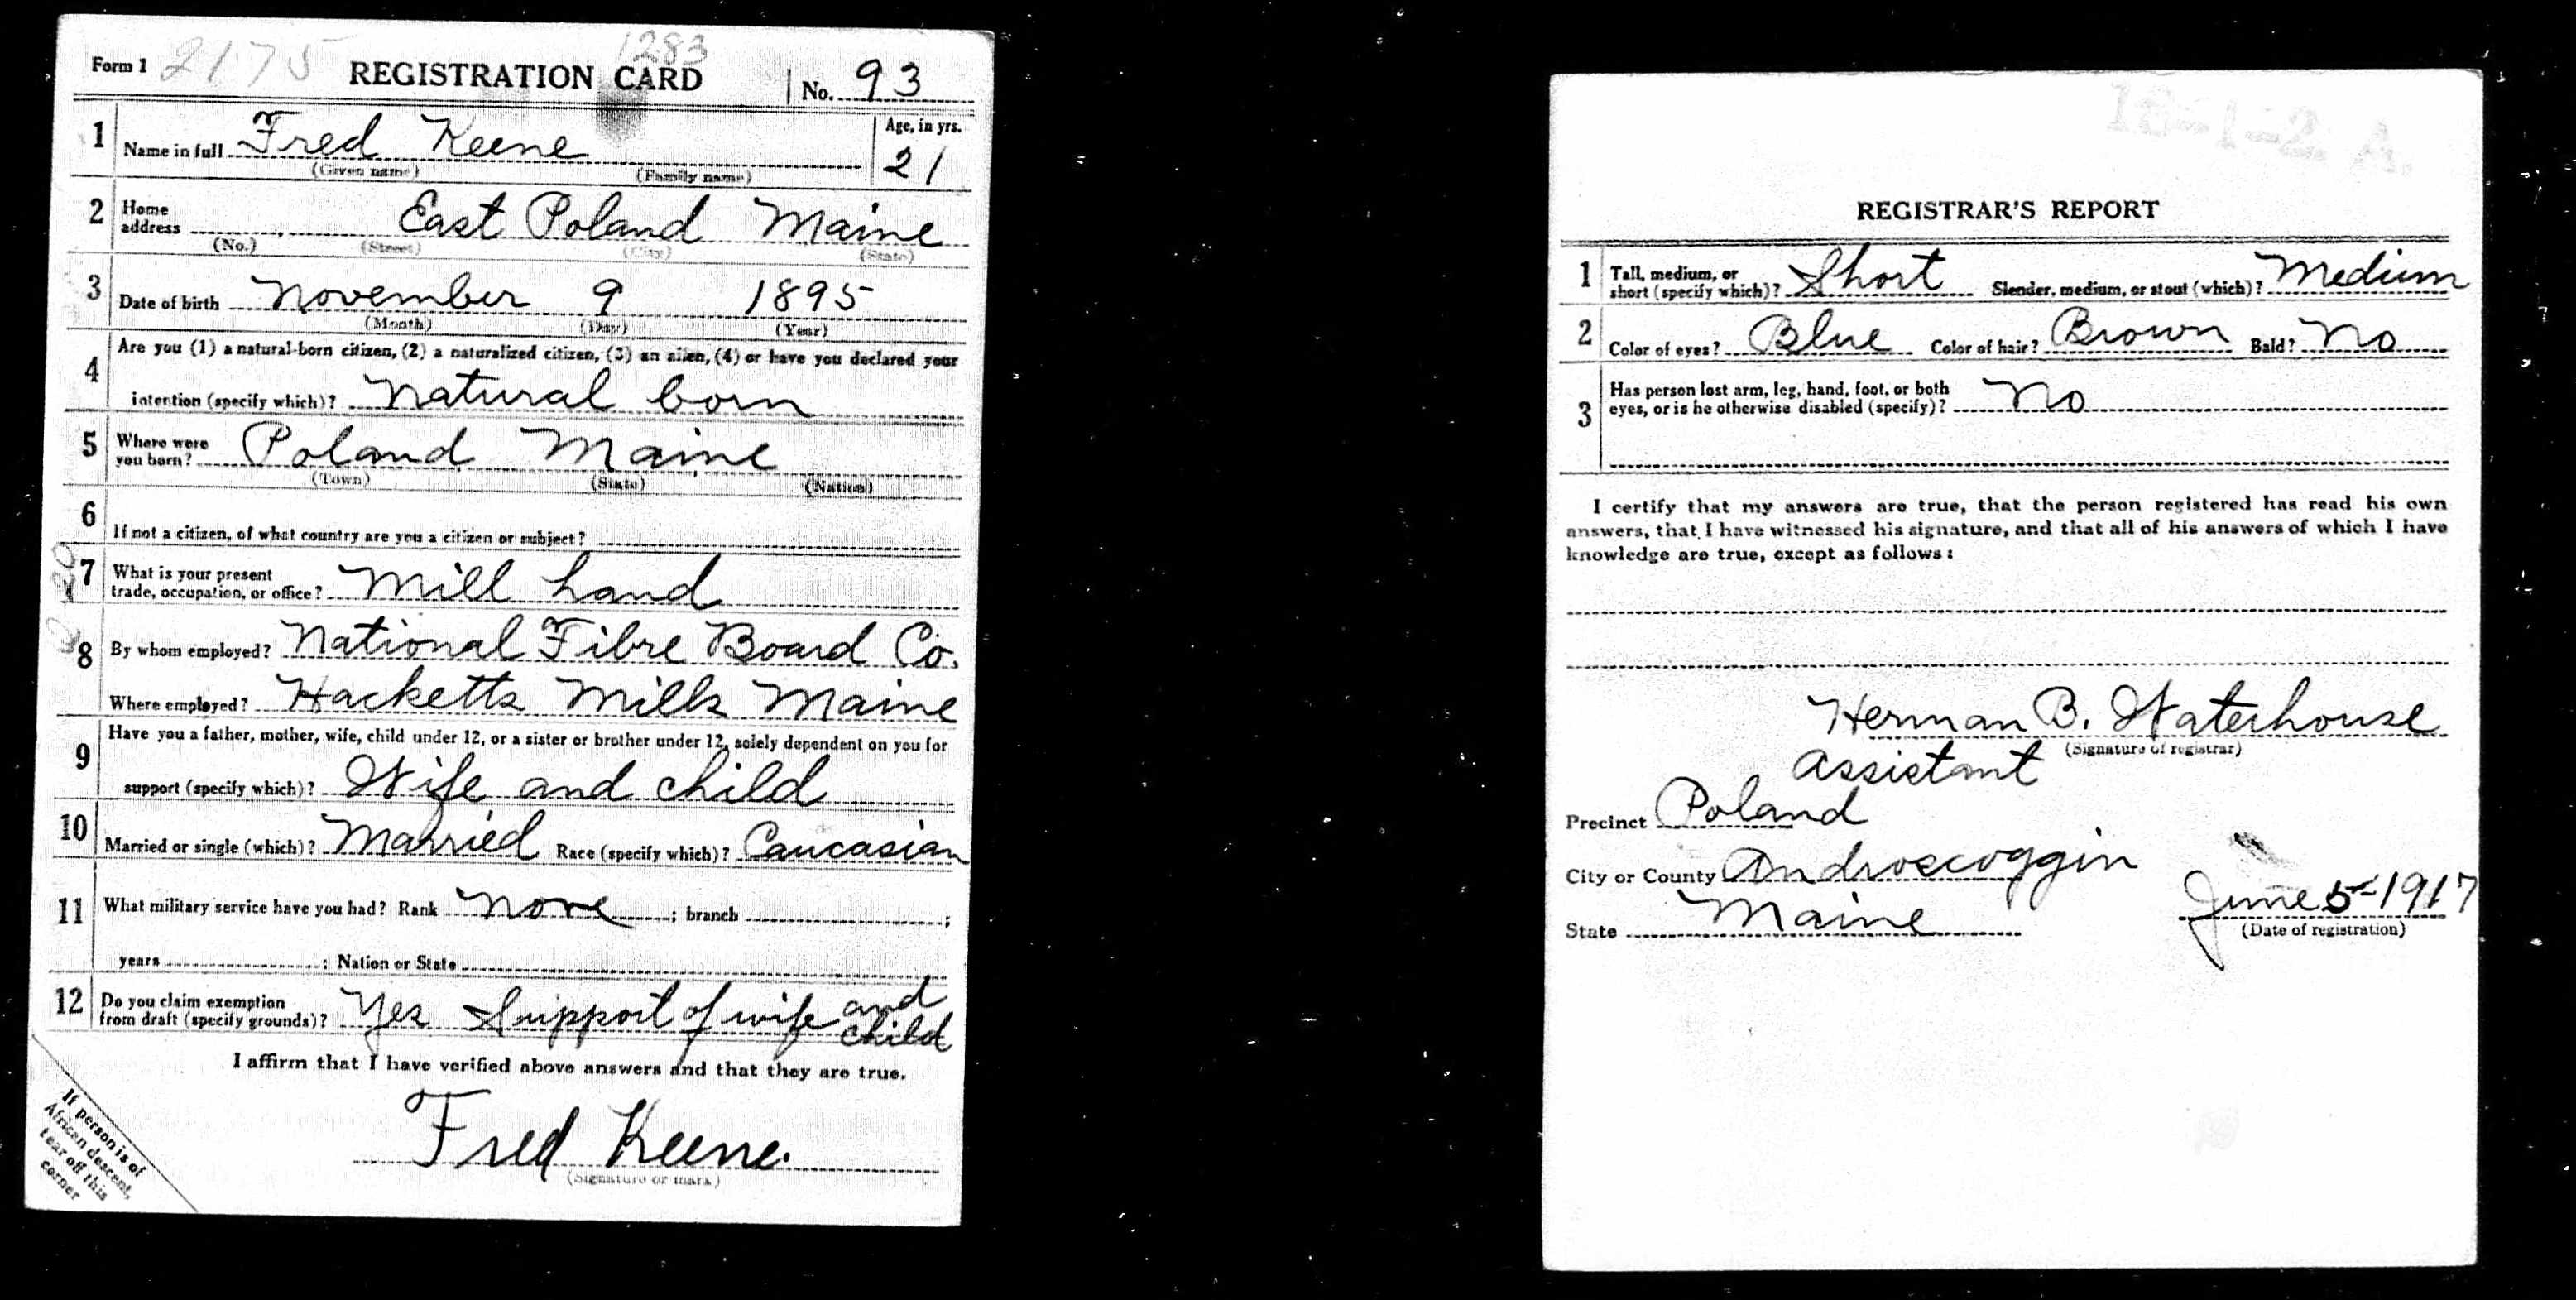 Form 1 2175 REGISTRATION CARD 1283 No. 93
1 Name in full Fred Keene Age, in yrs. 21
(Given name) (Family name)
2 Home address East Poland Maine
(No.) (Street) (City) (State)
3 Date of birth November 9 1895
(Month) (Day) (Year)
4 Are you (1) a natural-born citizen, (2) a naturalized citizen, (3) an alien, (4) or have you declared your
intention (specify which)? Natural born
5 Where were you born? Poland Maine
(Town) (State) (Nation)
6 If not a citizen, of what country are you a citizen or subject?
7 What is your present trade, occupation, or office? Mill hand
8 By whom employed? National Fibre Board Co.
Where employed? Hacketts Mills Maine
9 Have you a father, mother, wife, child under 12, or a sister or brother under 12, solely dependent on you for
support (specify which)? Wife and child
10 Married or single (which)? Married Race (specify which)? Caucasian
11 What military service have you had? Rank None ; branch ;
years ; Nation or State
12 Do you claim exemption from draft (specify grounds)? Yes Support of wife and child
I affirm that I have verified above answers and that they are true.
Fred Keene.
(Signature or mark)
If person is of
African descent,
tear off this
corner
18-1-2 A.
REGISTRAR'S REPORT
1 Tall, medium, or short (specify which)? Short Slender, medium, or stout (which)? Medium
2 Color of eyes? Blue Color of hair? Brown Bald? No
3 Has person lost arm, leg, hand, foot, or both
eyes, or is he otherwise disabled (specify)? No
I certify that my answers are true, that the person registered has read his own
answers, that I have witnessed his signature, and that all of his answers of which I have
knowledge are true, except as follows:
Herman B. Waterhouse
(Signature of registrar)
Assistant
Precinct Poland
City or County Androscoggin
State Maine June 5-1917
(Date of registration)